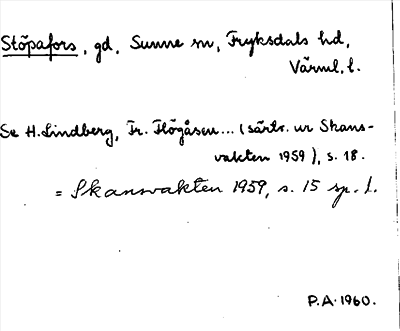 Stöpafors, gd, Sunne sn, Fryksdals hd,
Värml. l.
Se H. Lindberg, Fr. Högåsen... (särtr. ur Skans-
vakten 1959), s. 18.
= Skansvakten 1959, s. 15 sp. 1.
P.A. 1960.